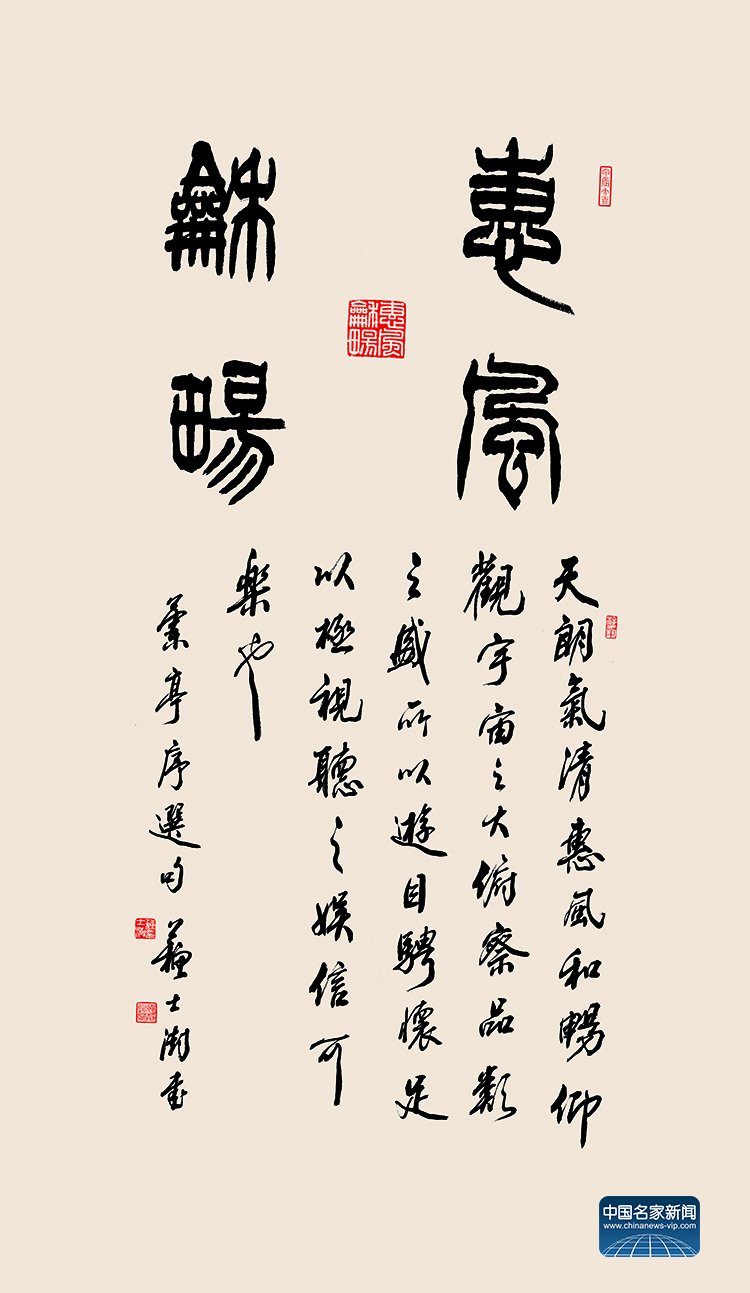 惠風
龢畼
惠風
龢畼
天朗氣清惠風和暢仰
觀宇宙之大俯察品類
之盛所以遊目騁懷足
以極視聽之娛信可
樂也
蘭亭序選句 蘇士澍書
中国名家新闻
www.chinanews-vip.com